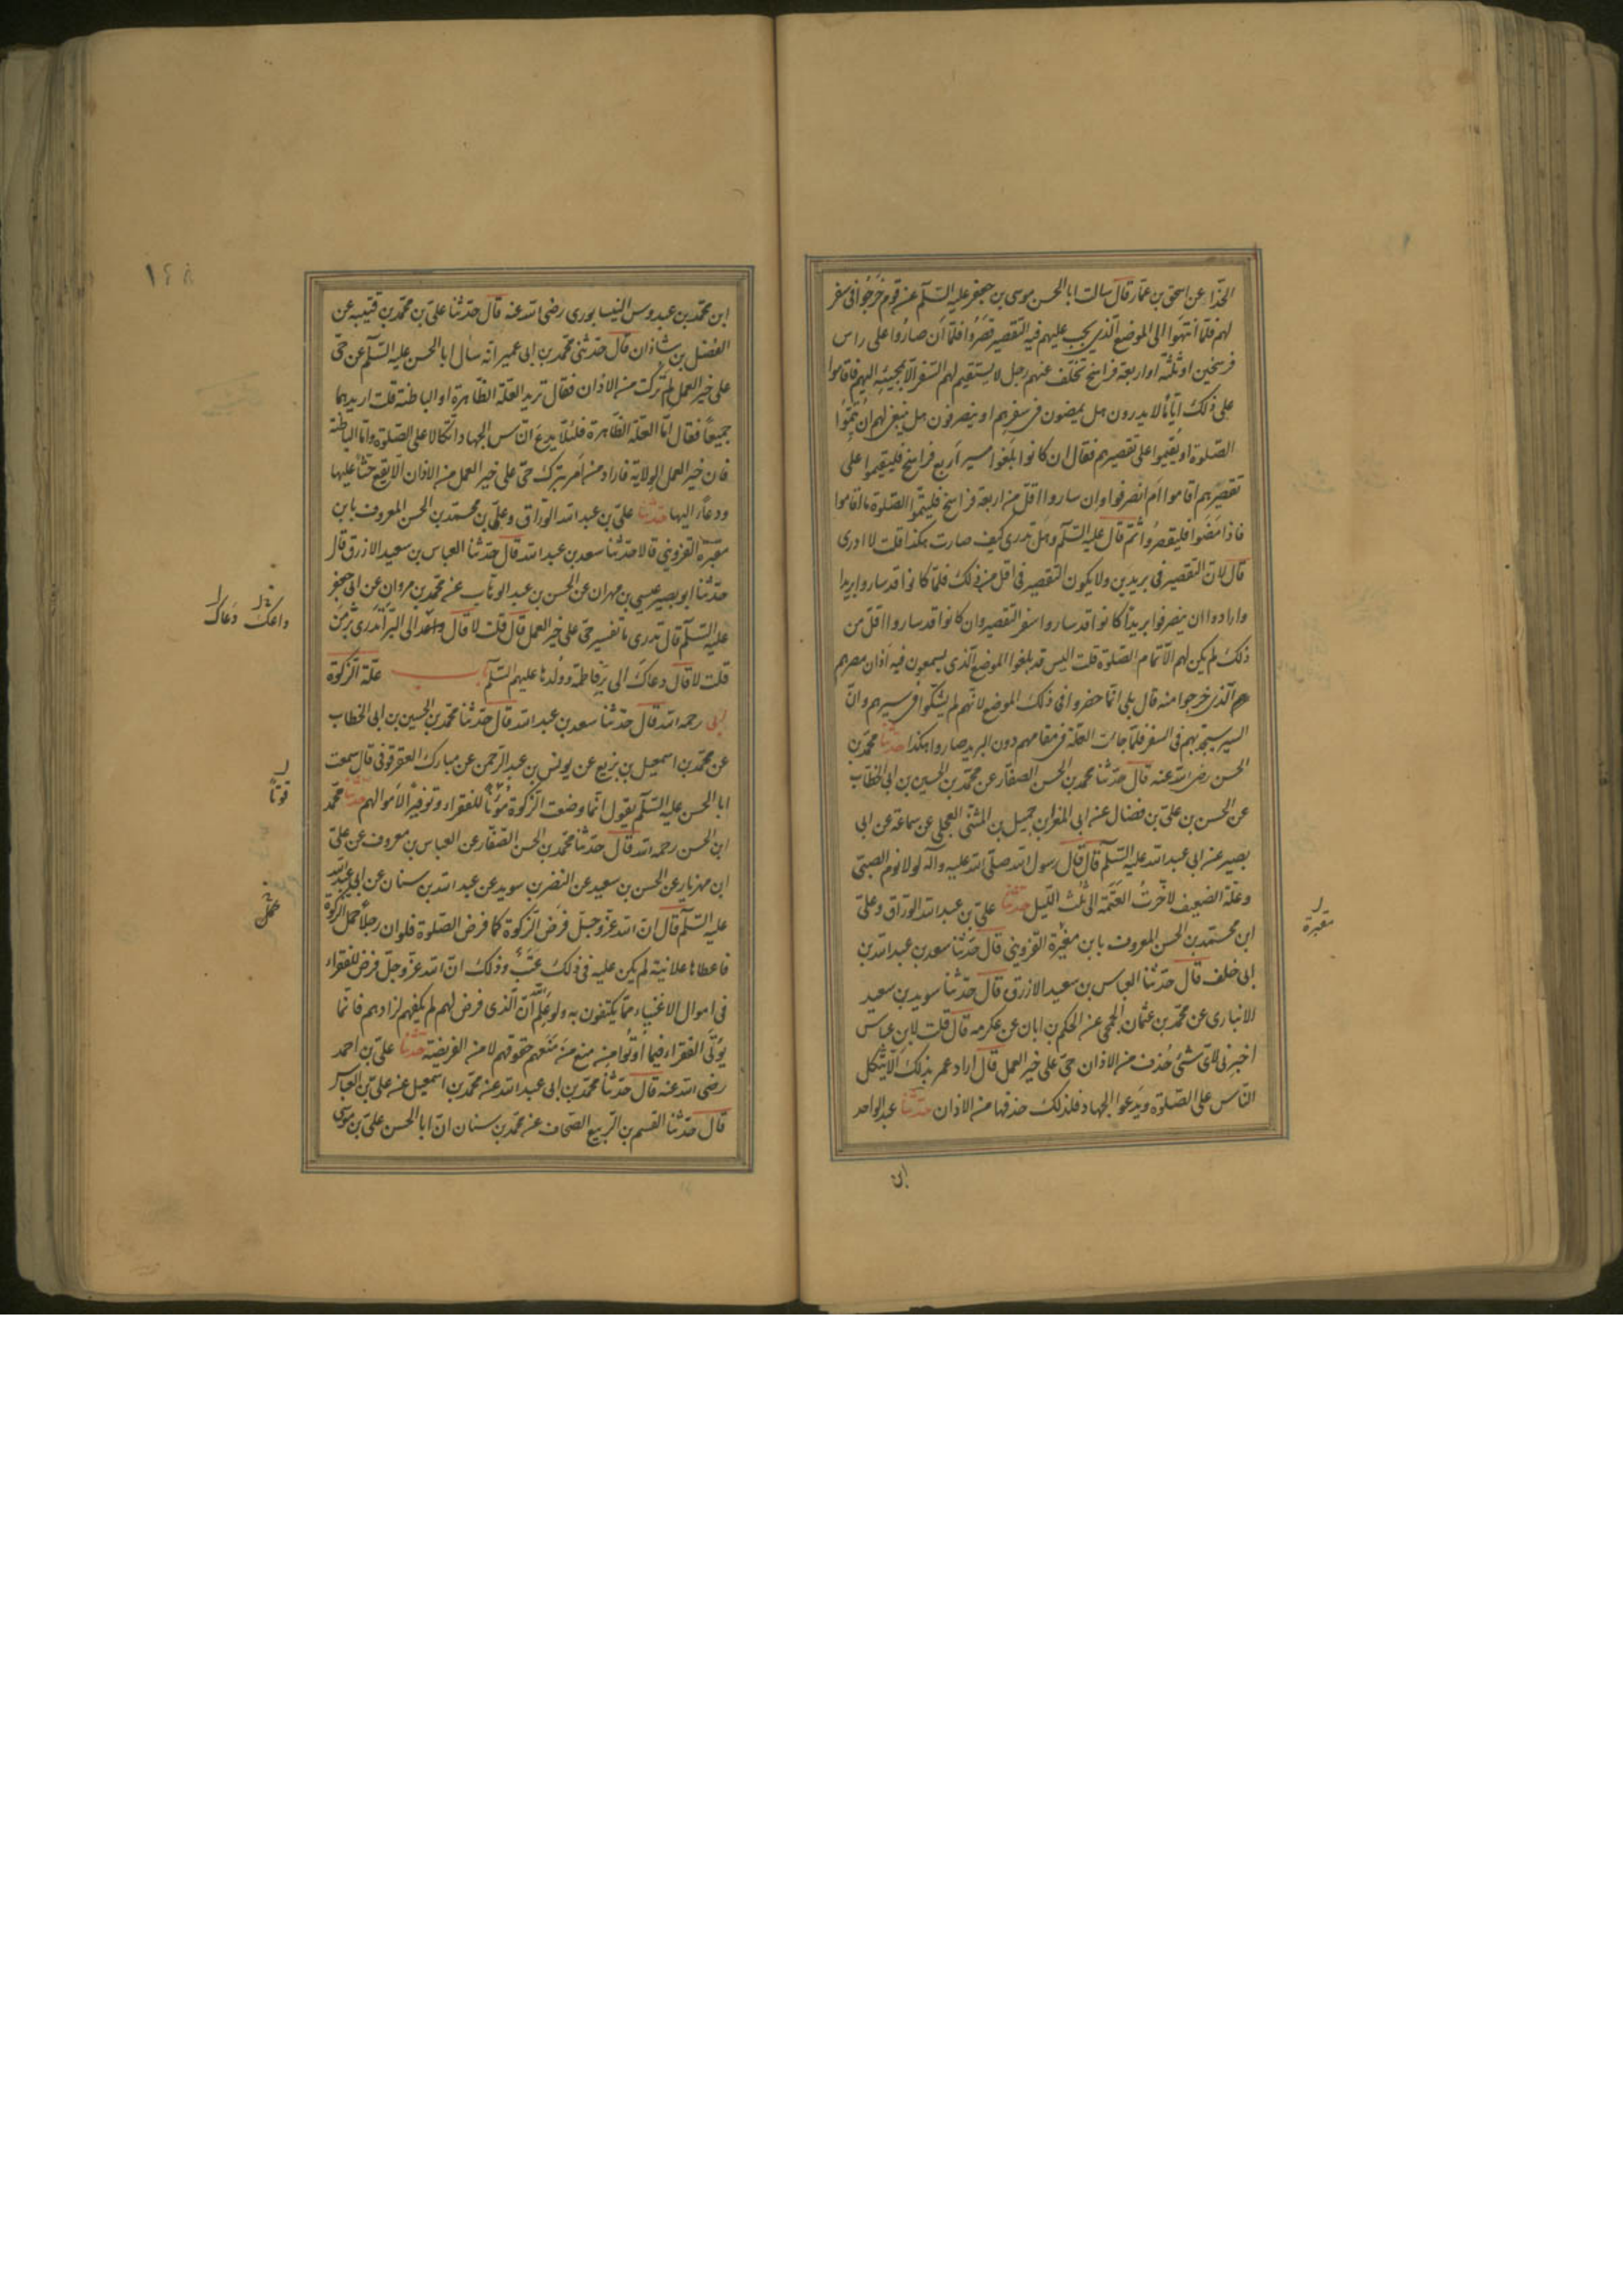 الحذاء عن اسحق بن عمار قال سالت ابا الحسن موسى بن جعفر عليه السلام عن قوم خرجوا فى سفر
لهم فلما انتهوا الى الموضع الذى يجب عليهم فيه التقصير قصروا فلما ان صاروا على راس
فرسخين او ثلثة او اربعة فراسخ تخلف عنهم رجل لا يستقيم لهم السفر الا بمجيئه اليهم فاقاموا
على ذلك اياما لا يدرون هل يمضون فى سفرهم او ينصرفون هل ينبغى لهم ان يتموا
الصلوة او يقيموا على تقصيرهم فقال ان كانوا بلغوا مسير اربع فراسخ فليقيموا على
تقصيرهم اقاموا ام انصرفوا وان ساروا اقل من اربعة فراسخ فليتموا الصلوة ما اقاموا
فاذا مضوا فليقصروا ثم قال عليه السلام وهل تدرى كيف صارت هكذا قلت لا ادرى
قال لان التقصير فى بريدين ولا يكون التقصير فى اقل من ذلك فلما كانوا قد ساروا بريدا
وارادوا ان ينصرفوا بريدا كانوا قد ساروا سفر التقصير وان كانوا قد ساروا اقل من
ذلك لم يكن لهم الا تمام الصلوة قلت اليس قد بلغوا الموضع الذى يسمعون فيه اذان مصرهم
الذى خرجوا منه قال بلى انما حضروا فى ذلك الموضع لانهم لم يشكوا فى سيرهم وان
السير سيجد بهم فى السفر فلما جاءت العلة فى مقامهم دون البريد صاروا هكذا حدثنا محمد بن
الحسن رضى الله عنه قال حدثنا محمد بن الحسن الصفار عن محمد بن الحسين بن ابى الخطاب
عن الحسن بن على بن فضال عن ابى المغرا بن جميل بن المثنى العجلى عن سماعة عن ابى
بصير عن ابى عبد الله عليه السلام قال قال رسول الله صلى الله عليه وآله لولا نوم الصبى
وعلة الضعيف لاخرت العتمة الى ثلث الليل حدثنا على بن عبد الله الوراق وعلى
ابن محمد بن الحسن المعروف بابن مغيرة القزوينى قال حدثنا سعد بن عبد الله بن
ابى خلف قال حدثنا العباس بن سعيد الازرق قال حدثنا سويد بن سعيد
الانبارى عن محمد بن عثمان الجمحى عن الحكم بن ابان عن عكرمه قال قلت لابن عباس
اخبرنى لاى شئ حذف من الاذان حى على خير العمل قال اراد عمر بذلك الا يتكل
الناس على الصلوة ويدعوا الجهاد فلذلك حذفها من الاذان حدثنا عبد الواحد
ابن
مقبرة
١٤٨
ابن محمد بن عبدوس النيسابورى رضى الله عنه قال حدثنا على بن محمد بن قتيبه عن
الفضل بن شاذان قال حدثنى محمد بن ابى عمير انه سال ابا الحسن عليه السلام عن حى
على خير العمل لم تركت من الاذان فقال تريد العلة الظاهرة او الباطنة قلت اريدهما
جميعا فقال اما العلة الظاهرة فلئلا يدع الناس الجهاد اتكالا على الصلوة واما الباطنة
فان خير العمل الولاية فاراد من امر بترك حى على خير العمل من الاذان الا يقع حث عليها
ودعاء اليها حدثنا على بن عبد الله الوراق وعلى بن محمد بن الحسن المعروف بابن
مقبرة القزوينى قالا حدثنا سعد بن عبد الله قال حدثنا العباس بن سعيد الازرق قال
حدثنا ابو بصير عيسى بن مهران عن الحسن بن عبد الوهاب عن محمد بن مروان عن ابى جعفر
عليه السلام قال تدرى ما تفسير حى على خير العمل قال قلت لا قال دعاك الى البر اتدرى بر من
قلت لا قال دعاك الى بر فاطمة وولدها عليهم السلام باب علة الزكوة
ابى رحمه الله قال حدثنا سعد بن عبد الله قال حدثنا محمد بن الحسين بن ابى الخطاب
عن محمد بن اسمعيل بن بزيع عن يونس بن عبد الرحمن عن مبارك العقرقوفى قال سمعت
ابا الحسن عليه السلام يقول انما وضعت الزكوة قوتا للفقراء وتوفيرا لاموالهم حدثنا محمد
ابن الحسن رحمه الله قال حدثنا محمد بن الحسن الصفار عن العباس بن معروف عن على
ابن مهزيار عن الحسن بن سعيد عن النضر بن سويد عن عبد الله بن سنان عن ابى عبد الله
عليه السلام قال ان الله عز وجل فرض الزكوة كما فرض الصلوة فلو ان رجلا حمل الزكوة
فاعطاها علانية لم يكن عليه فى ذلك عتب وذلك ان الله عز وجل فرض للفقراء
فى اموال الاغنياء مما يكتفون به ولو علم ان الذى فرض لهم لم يكفهم لزادهم فانما
يؤتى الفقراء فيما اوتوا من منع من منعهم حقوقهم لا من الفريضة حدثنا على بن احمد
رضى الله عنه قال حدثنا محمد بن ابى عبد الله عن محمد بن اسمعيل عن على بن العباس
قال حدثنا القسم بن الربيع الصحاف عن محمد بن سنان ان ابا الحسن على بن موسى
داعك دعاك
قوتا
حمل